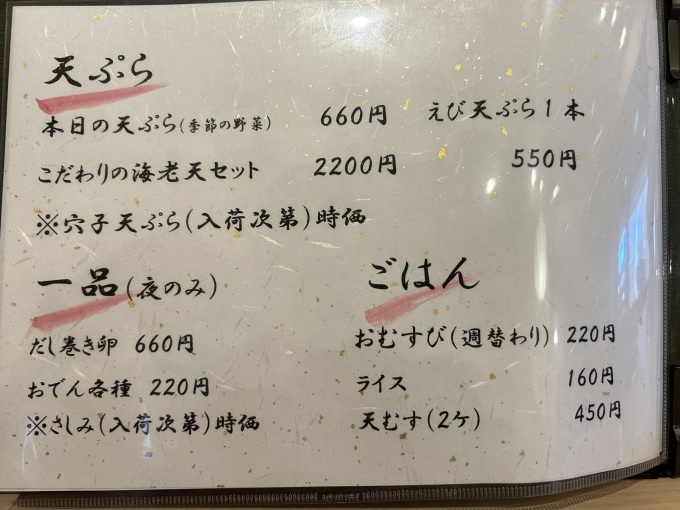 天ぷら
本日の天ぷら(季節の野菜) 660円 えび天ぷら1本
こだわりの海老天セット 2200円 550円
※穴子天ぷら(入荷次第)時価
一品(夜のみ)
だし巻き卵 660円
おでん各種 220円
※さしみ(入荷次第)時価
ごはん
おむすび(週替わり) 220円
ライス 160円
天むす(2ケ) 450円